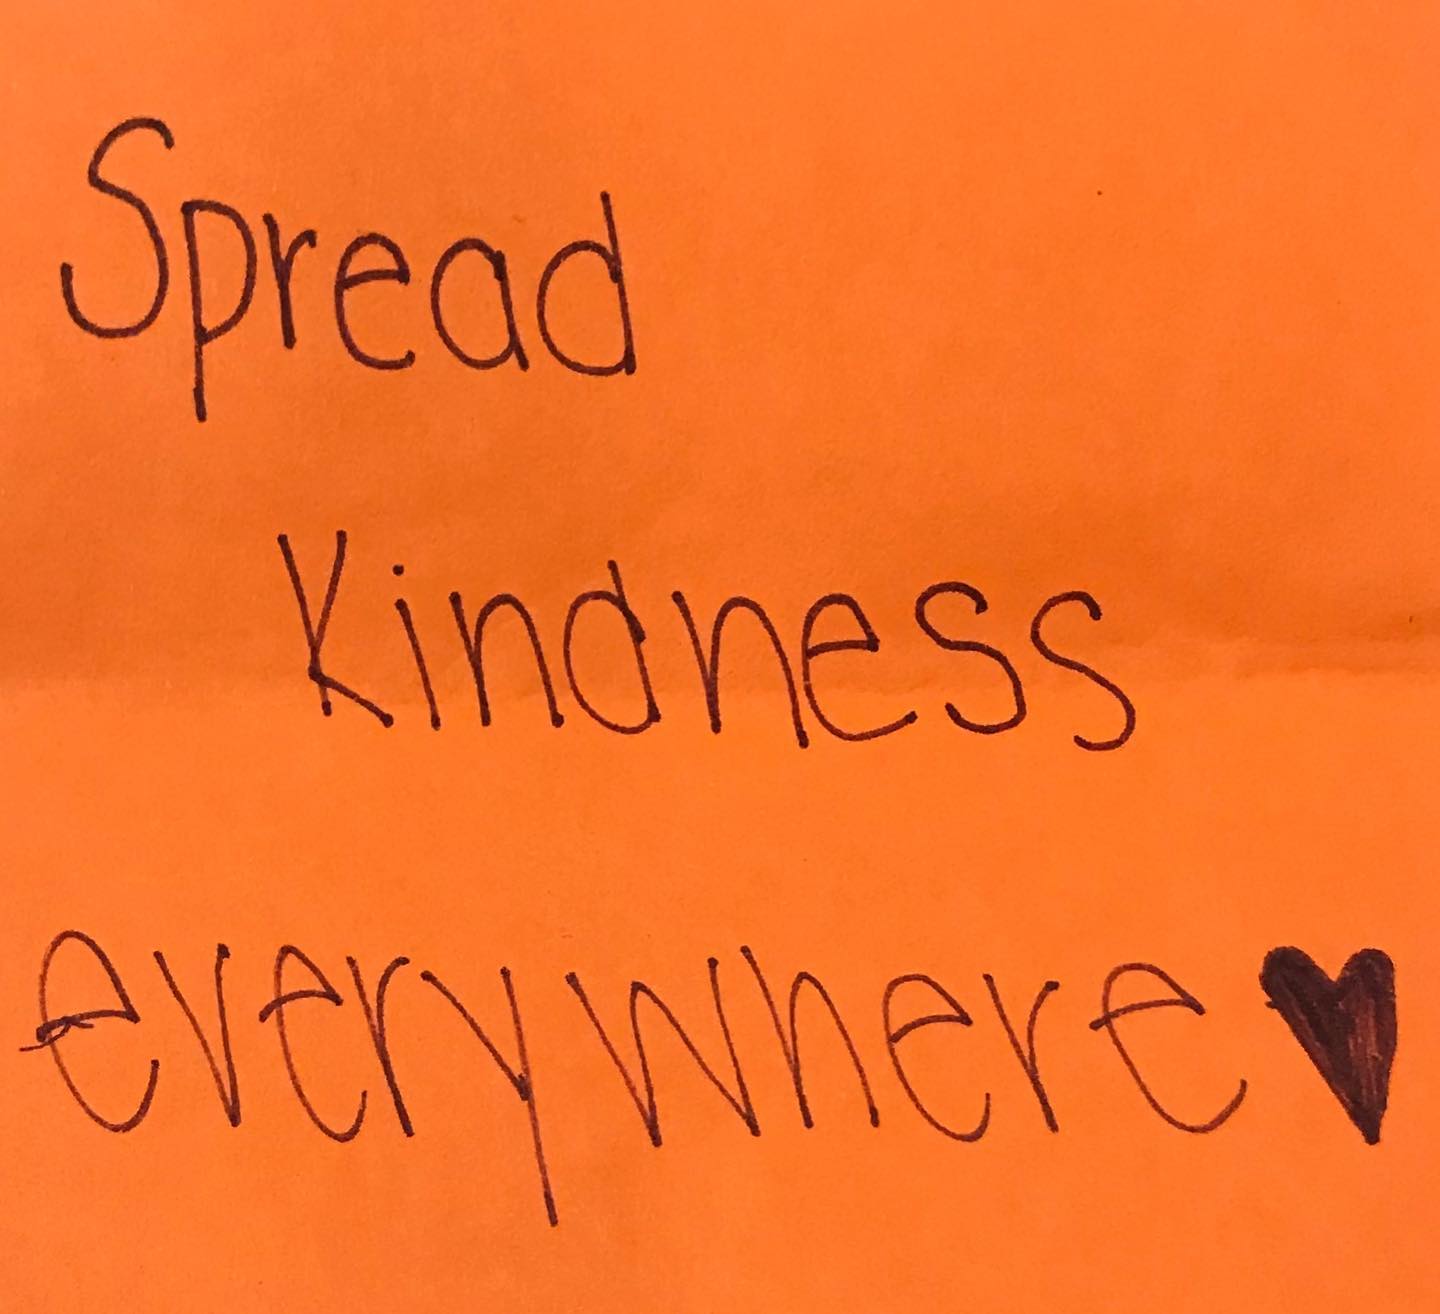 Spread
Kindness
everywhere♥